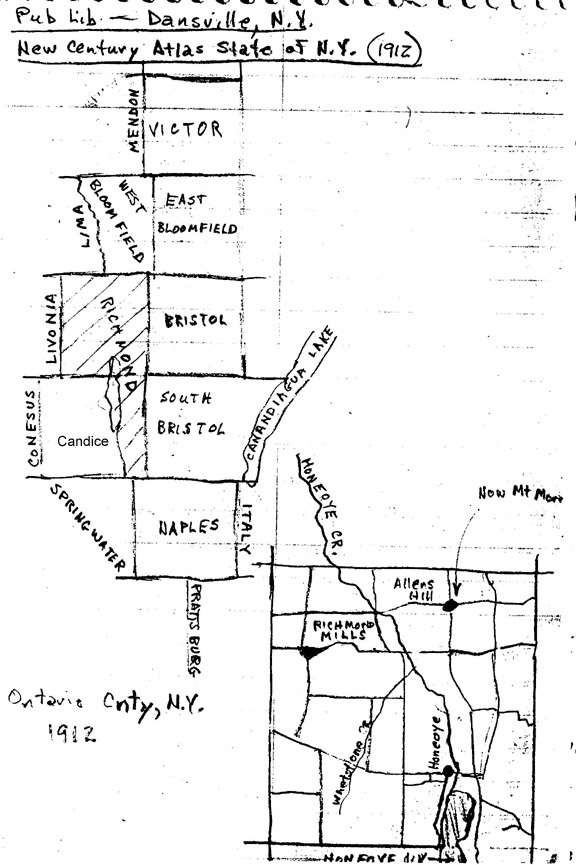 Pub Lib. — Dansville, N.Y.
New Century Atlas State of N.Y. (1912)
MENDON
VICTOR
LIMA
WEST
BLOOMFIELD
EAST
BLOOMFIELD
LIVONIA
RICHMOND
BRISTOL
CONESUS
Candice
SOUTH
BRISTOL
CANANDIAGUA LAKE
SPRINGWATER
NAPLES
ITALY
PRATTSBURG
HONEOYE CR.
Now Mt Morr
Allens
Hill
RICHMOND
MILLS
Ontario Cnty, N.Y.
1912
Whetstone
Honeoye
HONEOYE